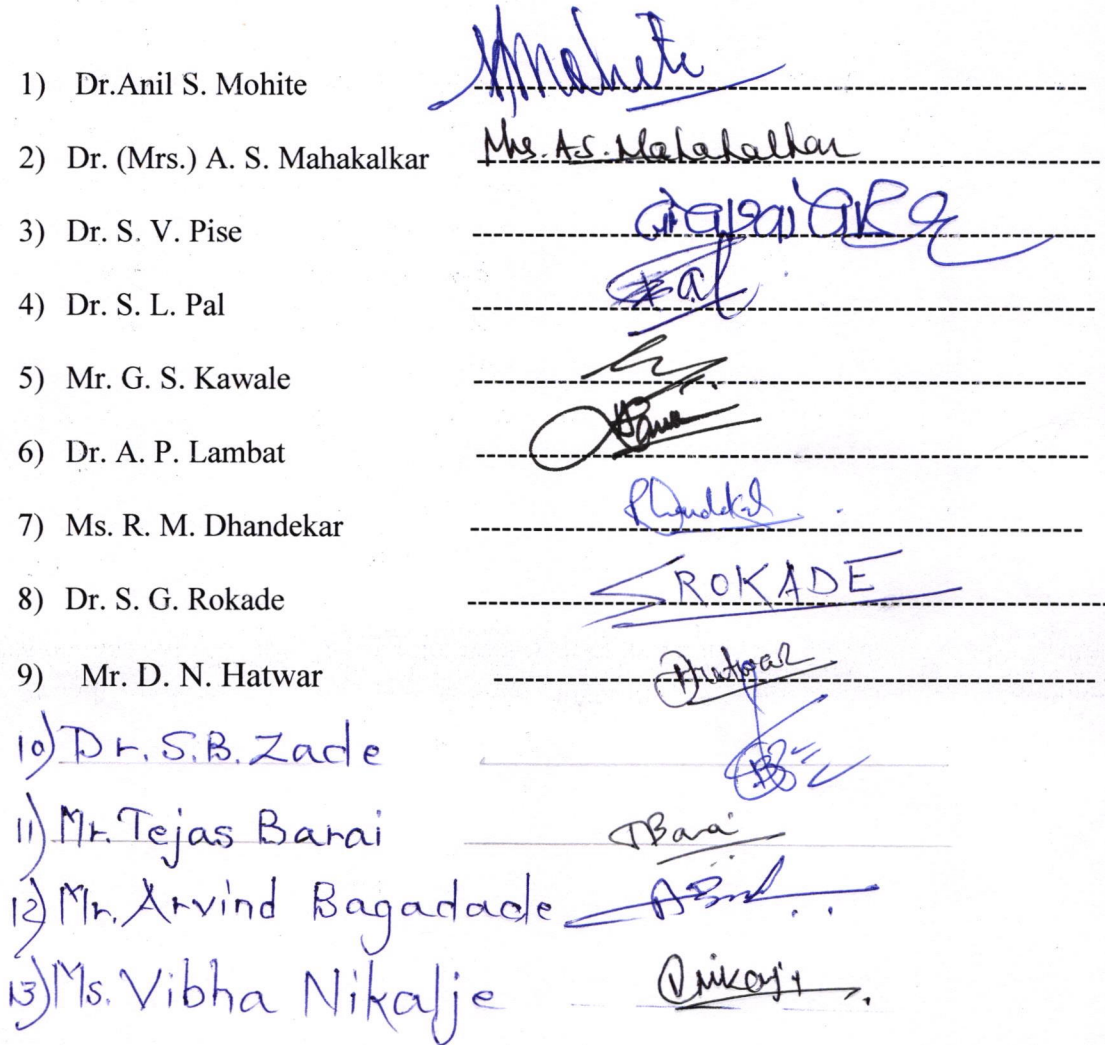 1) Dr.Anil S. Mohite Mohite
2) Dr. (Mrs.) A. S. Mahakalkar Mrs. A.S. Mahakalkar
3) Dr. S. V. Pise
4) Dr. S. L. Pal Pal
5) Mr. G. S. Kawale
6) Dr. A. P. Lambat
7) Ms. R. M. Dhandekar
8) Dr. S. G. Rokade SROKADE
9) Mr. D. N. Hatwar
10) Dr. S.B. Zade
11) Mr. Tejas Barai TBarai
12) Mr. Arvind Bagadade
13) Ms. Vibha Nikalje